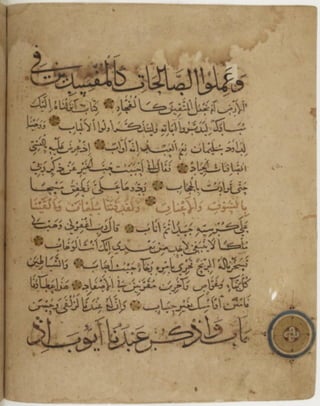 وعملوا الصالحات كالمفسدين في
الأرض أم نجعل المتقين كالفجار كتاب أنزلناه إليك
مبارك ليدبروا آياته وليتذكر أولوا الألباب ووهبنا
لداود سليمان نعم العبد إنه أواب إذ عرض عليه بالعشي
الصافنات الجياد فقال إني أحببت حب الخير عن ذكر ربي
حتى توارت بالحجاب ردوها علي فطفق مسحا
بالسوق والأعناق ولقد فتنا سليمان وألقينا
على كرسيه جسدا ثم أناب قال رب اغفر لي وهب لي
ملكا لا ينبغي لأحد من بعدي إنك أنت الوهاب
فسخرنا له الريح تجري بأمره رخاء حيث أصاب والشياطين
كل بناء وغواص وآخرين مقرنين في الأصفاد هذا عطاؤنا
فامنن أو أمسك بغير حساب وإن له عندنا لزلفى وحسن
مآب واذكر عبدنا أيوب إذ